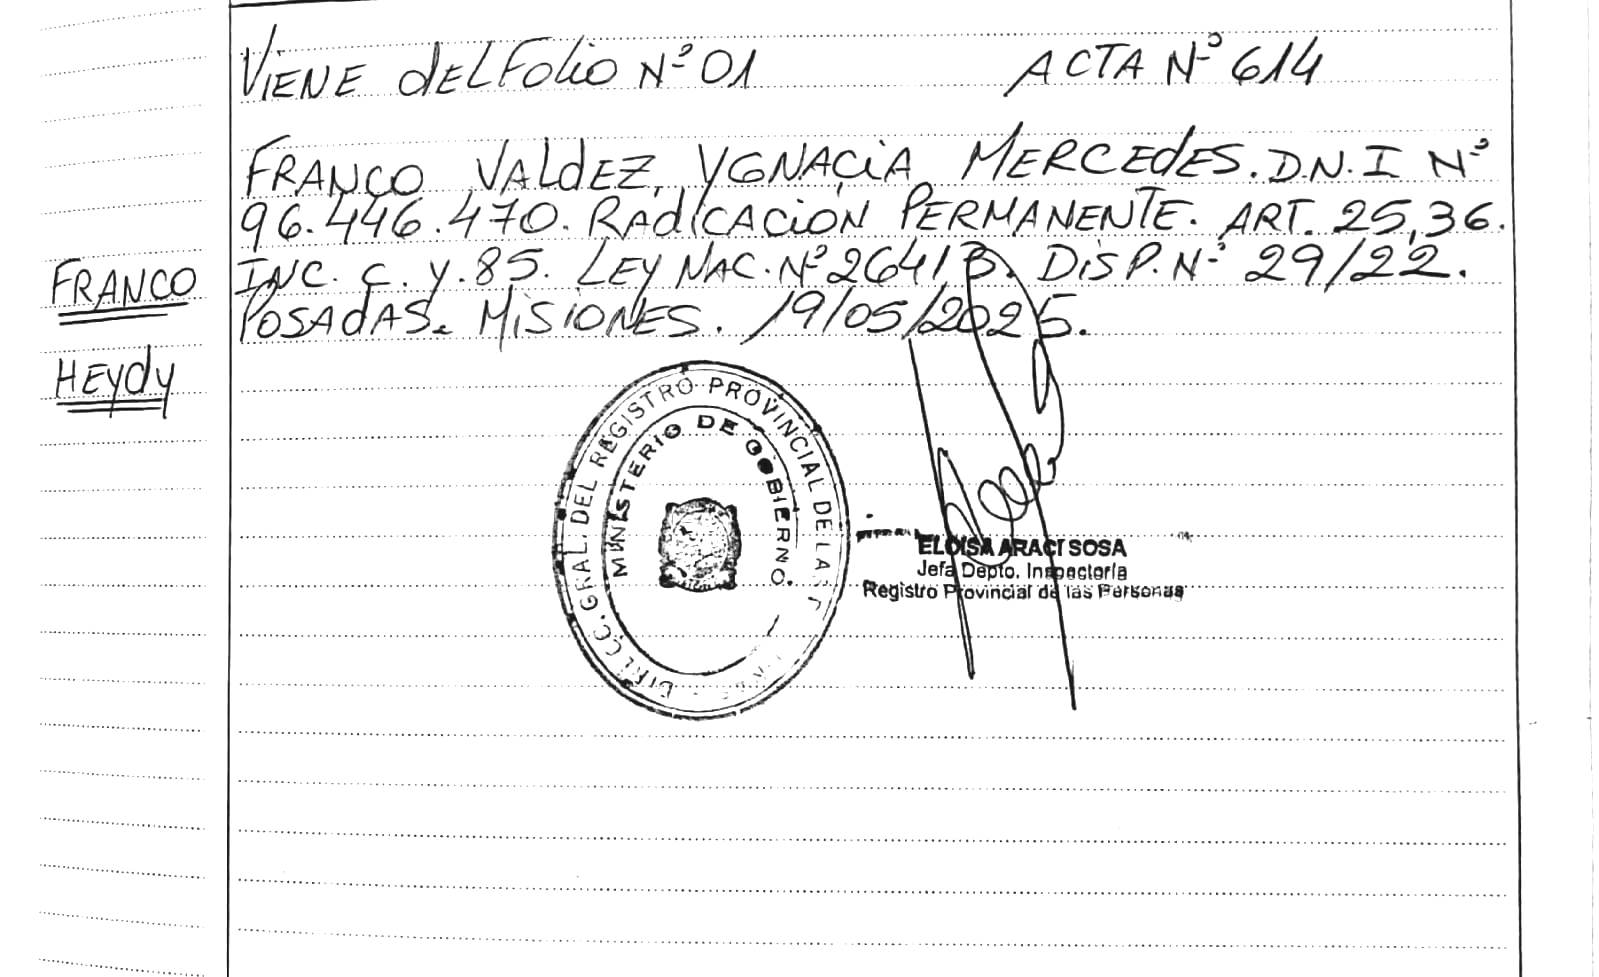 VIENE DEL FOLIO Nº 01 ACTA Nº 614
FRANCO VALDEZ, YGNACIA MERCEDES. D.N.I Nº
96.446.470. RADICACIÓN PERMANENTE. ART. 25,36.
INC. C. y. 85. LEY NAC. Nº 26413. DISP. Nº 29/22.
POSADAS. MISIONES. 19/05/2025.
FRANCO
HEYDY
DIRECC. GRAL. DEL REGISTRO PROVINCIAL DE LAS
MINISTERIO DE GOBIERNO
ELOISA ARACI SOSA
Jefa Depto. Inspectoría
Registro Provincial de las Personas